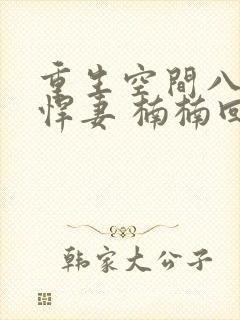 重生空間八
悍妻 楠楠回
韩家大公子